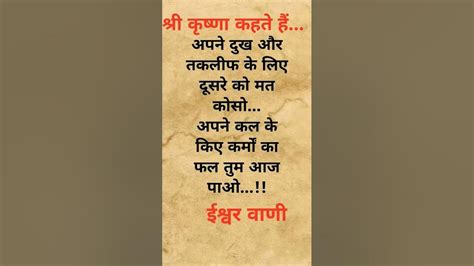 श्री कृष्णा कहते हैं...
अपने दुख और
तकलीफ के लिए
दूसरे को मत
कोसो...
अपने कल के
किए कर्मों का
फल तुम आज
पाओ...!!
ईश्वर वाणी